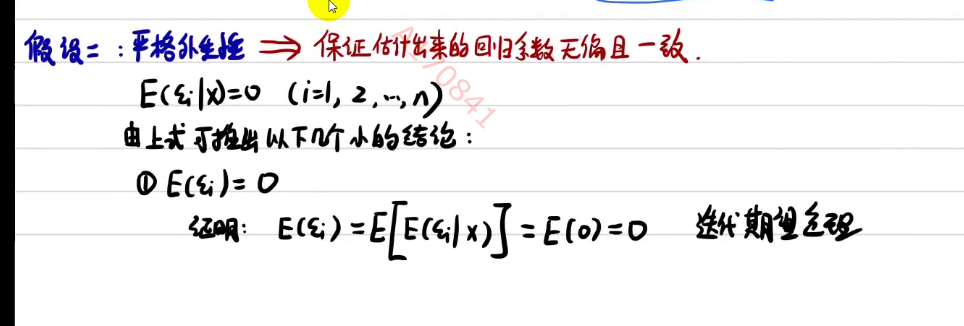 假设二:严格外生性 ⇒ 保证估计出来的回归系数无偏且一致.
E(εᵢ|x)=0 (i=1, 2, …, n)
A170841
由上式可推出以下几个小的结论:
① E(εᵢ)=0
证明: E(εᵢ)=E[E(εᵢ|x)]=E(0)=0 迭代期望定理